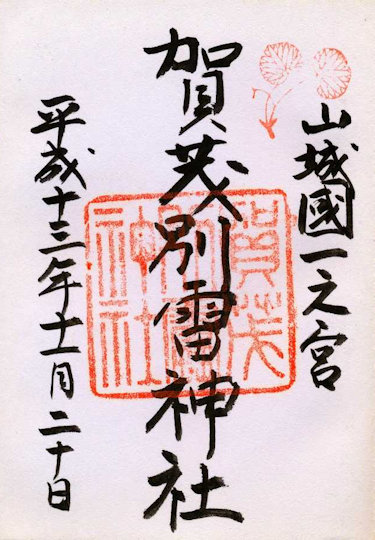 山城國一之宮
賀茂別雷神社
平成十三年十一月二十日
賀茂
別雷
神社